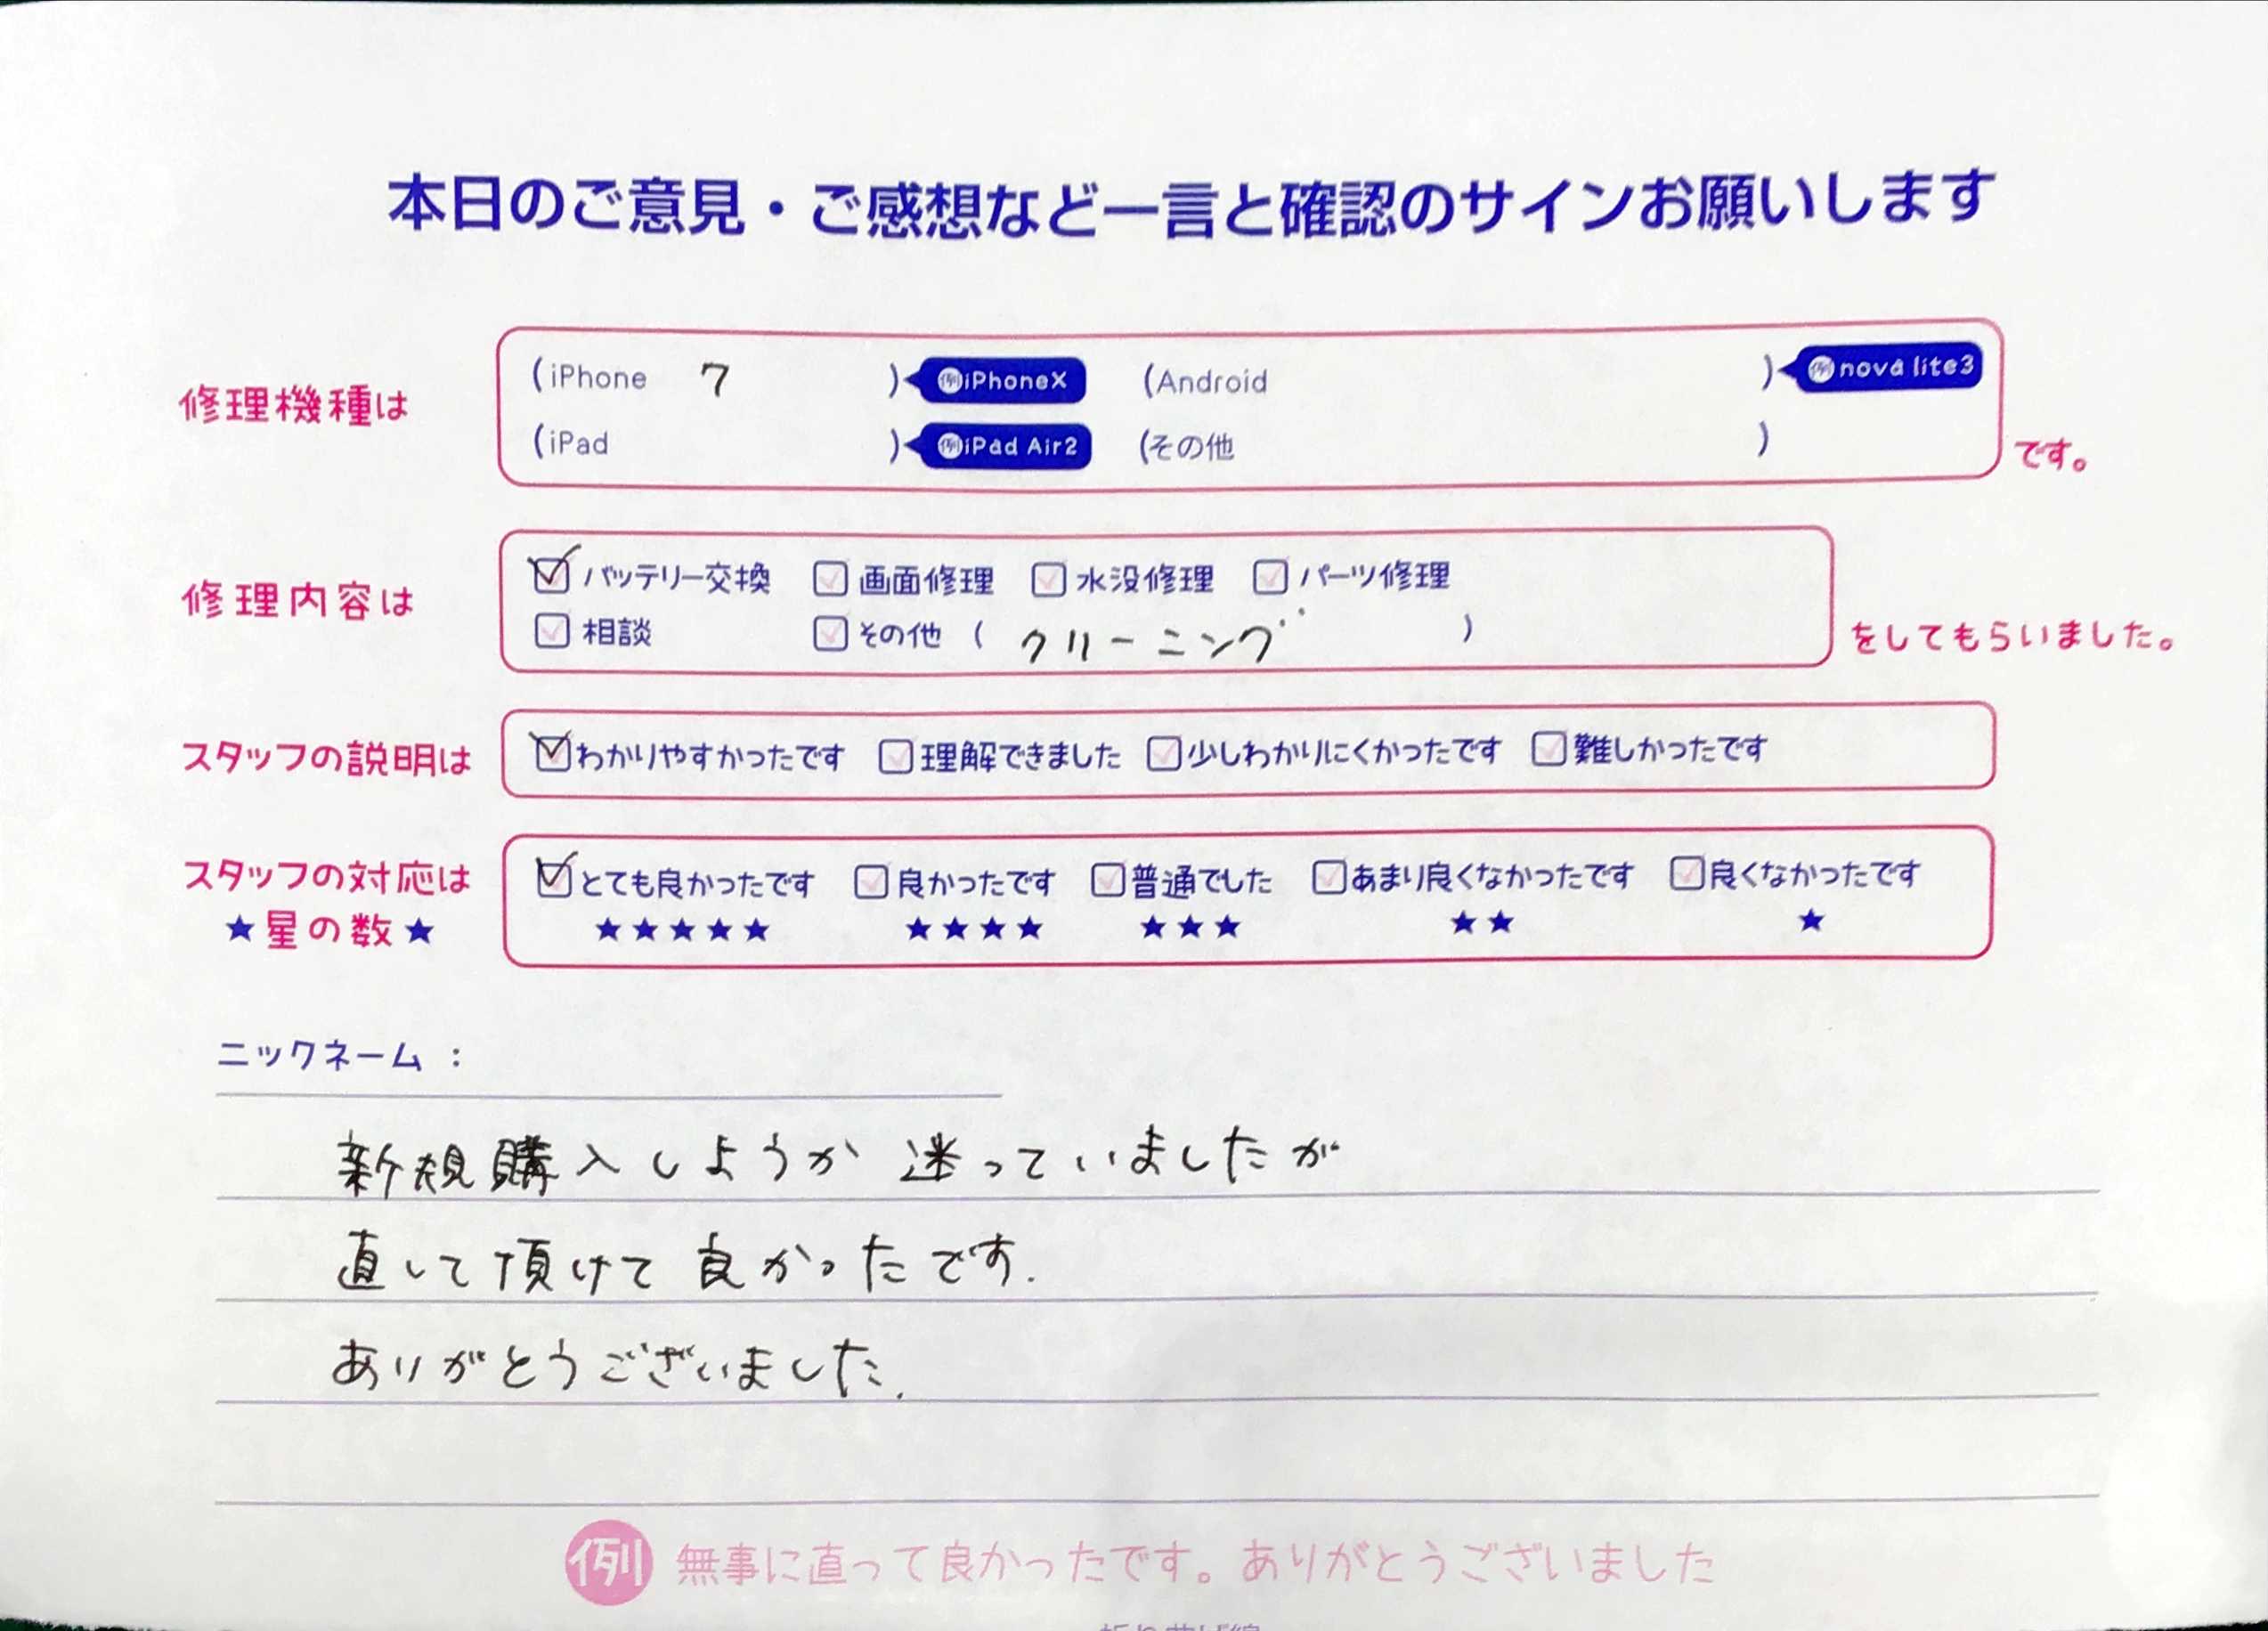 本日のご意見・ご感想など一言と確認のサインお願いします
修理機種は
(iPhone 7 ) 例iPhoneX (Android ) 例nova lite3
(iPad ) 例iPad Air2 (その他 )
です。
修理内容は
バッテリー交換 画面修理 水没修理 パーツ修理
相談 その他 ( クリーニング )
をしてもらいました。
スタッフの説明は
わかりやすかったです 理解できました 少しわかりにくかったです 難しかったです
スタッフの対応は
★星の数★
とても良かったです 良かったです 普通でした あまり良くなかったです 良くなかったです
★★★★★ ★★★★ ★★★ ★★ ★
ニックネーム :
新規購入しようか迷っていましたが
直して頂けて良かったです.
ありがとうございました.
例 無事に直って良かったです。ありがとうございました